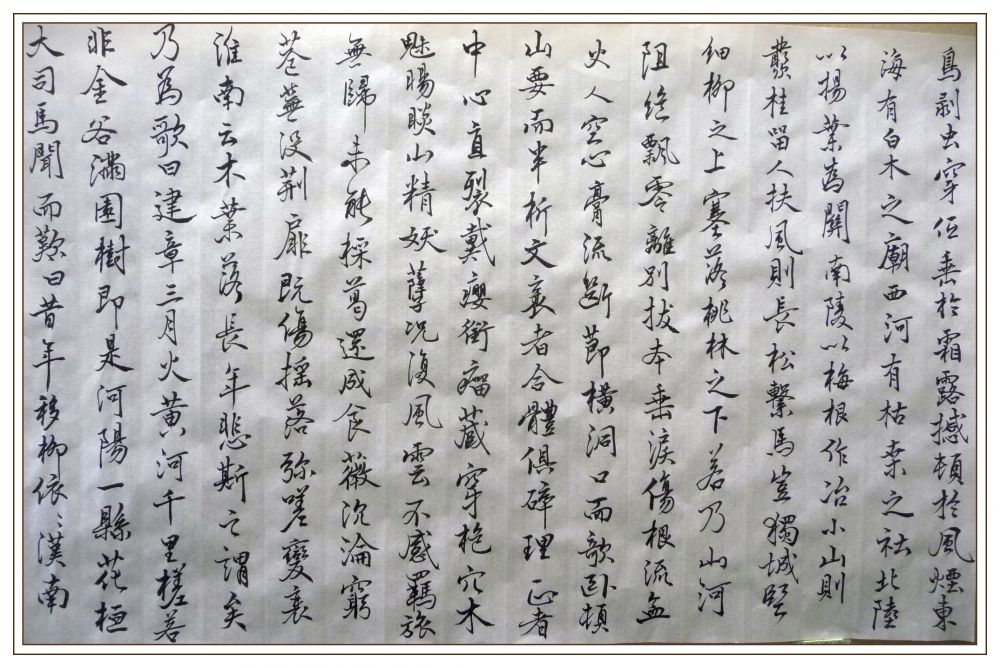 鳥剥虫穿低垂於霜露撼頓於風煙東
海有白木之廟西河有枯桑之社北陸
以楊葉為關南陵以梅根作冶小山則
叢桂留人扶風則長松繫馬豈獨城臨
細柳之上塞落桃林之下若乃山河
阻絶飄零離別拔本垂淚傷根流血
火入空心膏流斷節橫洞口而欹卧頓
山要而半折文袤者合體俱碎理正者
中心直裂戴癭銜瘤藏穿抱穴木
魅睗睒山精妖孽況復風雲不感羈旅
無歸未能採葛還成食薇沉淪窮
巷蕪没荊扉既傷搖落弥嗟變衰
淮南云木葉落長年悲斯之謂矣
乃為歌曰建章三月火黃河千里槎若
非金谷滿園樹即是河陽一縣花桓
大司馬聞而歎曰昔年移柳依〻漢南